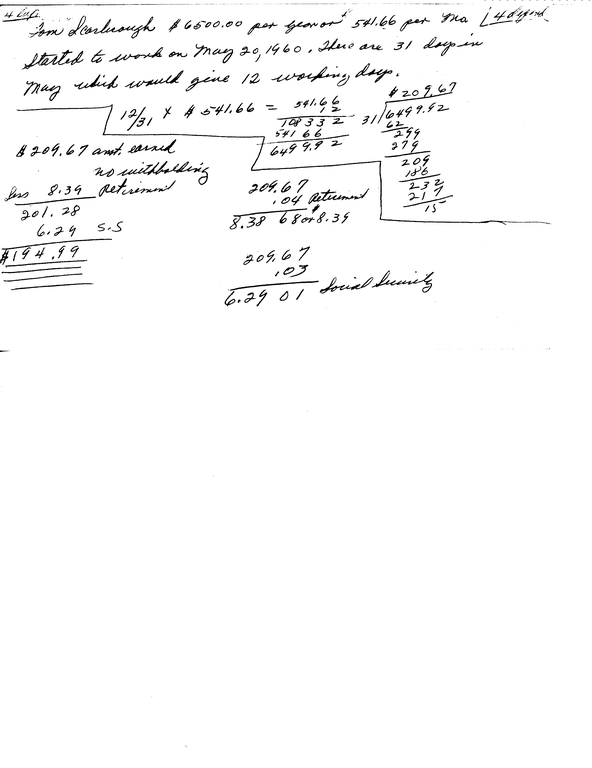 4 Dep.
Tom Scarbrough $6500.00 per year or $541.66 per Mo. 4 depend.
Started to work on May 20, 1960. There are 31 days in
May which would give 12 working days.
12/31 x $541.66 =
541.66
12
108332
54166
6499.92
$209.67
31)6499.92
62
299
279
209
186
232
217
15
$209.67 amt. earned
no withholding
less 8.39 Retirement
201.28
6.29 S.S
$194.99
209.67
.04 Retirement
8.38 68 or $8.39
209.67
.03
6.29 01 Social Security